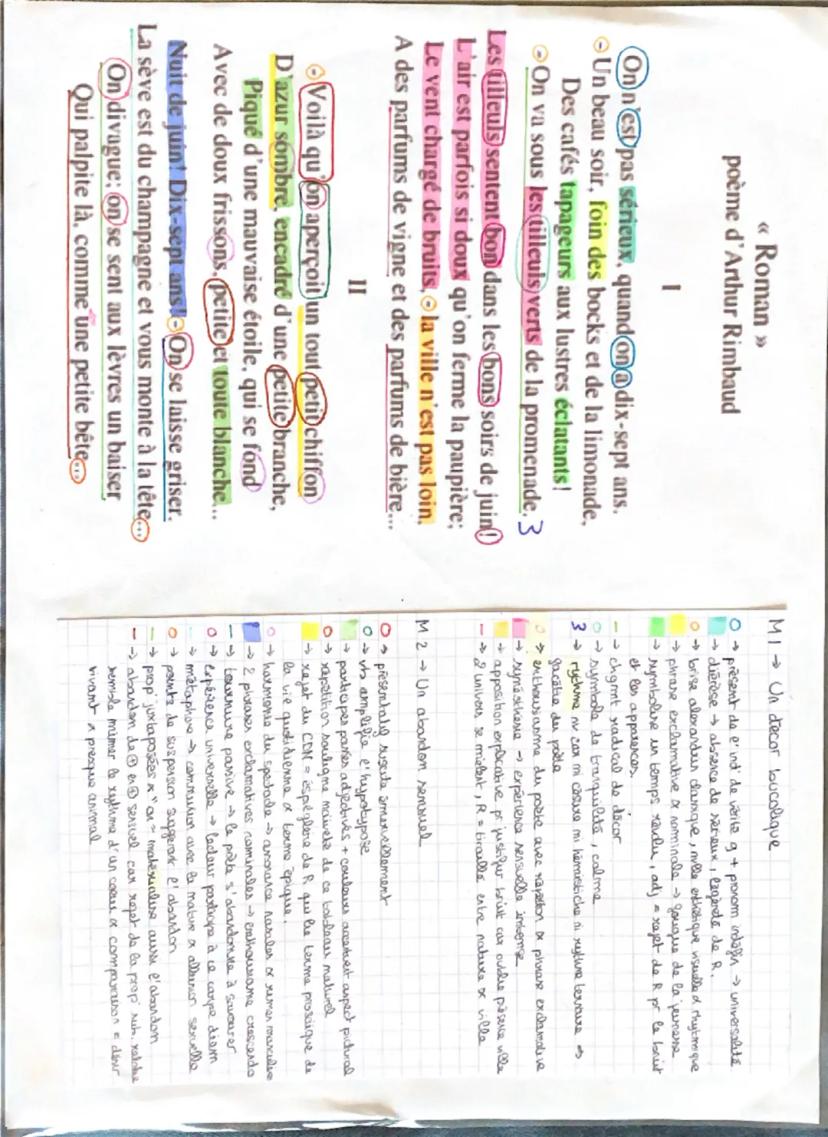 « Roman »
poème d'Arthur Rimbaud
I
On n'est pas sérieux, quand on a dix-sept ans.
- Un beau soir, foin des bocks et de la limonade,
Des cafés tapageurs aux lustres éclatants !
- On va sous les tilleuls verts de la promenade. 3
Les tilleuls sentent bon dans les bons soirs de juin !
L'air est parfois si doux qu'on ferme la paupière;
Le vent chargé de bruits, - la ville n'est pas loin,
A des parfums de vigne et des parfums de bière...
II
- Voilà qu'on aperçoit un tout petit chiffon
D'azur sombre, encadré d'une petite branche,
Piqué d'une mauvaise étoile, qui se fond
Avec de doux frissons, petite et toute blanche...
Nuit de juin ! Dix-sept ans ! - On se laisse griser.
La sève est du champagne et vous monte à la tête...
On divague; on se sent aux lèvres un baiser
Qui palpite là, comme une petite bête...
M1 → Un décor bucolique
→ présent de l'ind de vérité g + pronom indéfin → universalité
→ diérèse → absence de sérieux, légèreté de R.
→ brise alexandrin classique, nvlle esthétique visuelle et rhytmique
→ phrase exclamative et nominale → fougue de la jeunesse
→ symbolise un temps révolu, adj = rejet de R pr le bruit
et les apparences.
→ chgmt radical de décor
→ symbole de tranquillité, calme
3 → rythme nv car ni césure ni hémistiche ni rythme ternaire →
du poète
→ enthousiasme du poète avec répétition et phrase exclamative
→ synésthésie → expérience sensuelle intense
→ apposition explicative pr justifier bruit car oublie présence ville
→ 2 univers se mêlent, R = tiraillé entre nature et ville
M2 → Un abandon sensuel
→ présentatif suscite émerveillement
→ vb amplifie l'hypotypose
→ participes passés adjectivés + couleurs accentuent aspect pictural
→ répétition souligne naïveté de ce tableau naturel
→ rejet du CDN = espièglerie de R qui lie terme prosaïque de
la vie quotidienne et terme épique.
→ harmonie du spectacle → assonance nasales et rimes masculine
→ 2 phrases exclamatives nominales → enthousiasme crescendo
→ tournure passive → le poète s'abandonne à savourer
→ expérience universelle → lecteur participe à ce carpe diem
→ métaphore → communion avec la nature et allusion sexuelle
→ points de suspension suggèrent l'abandon
→ prop° juxtaposées x "on" = matérialise aussi l'abandon
→ abandon de et sensuel car rejet de la prop° sub. relative
semble mimer le rythme d'un coeur et comparaison = désir
vivant et presque animal